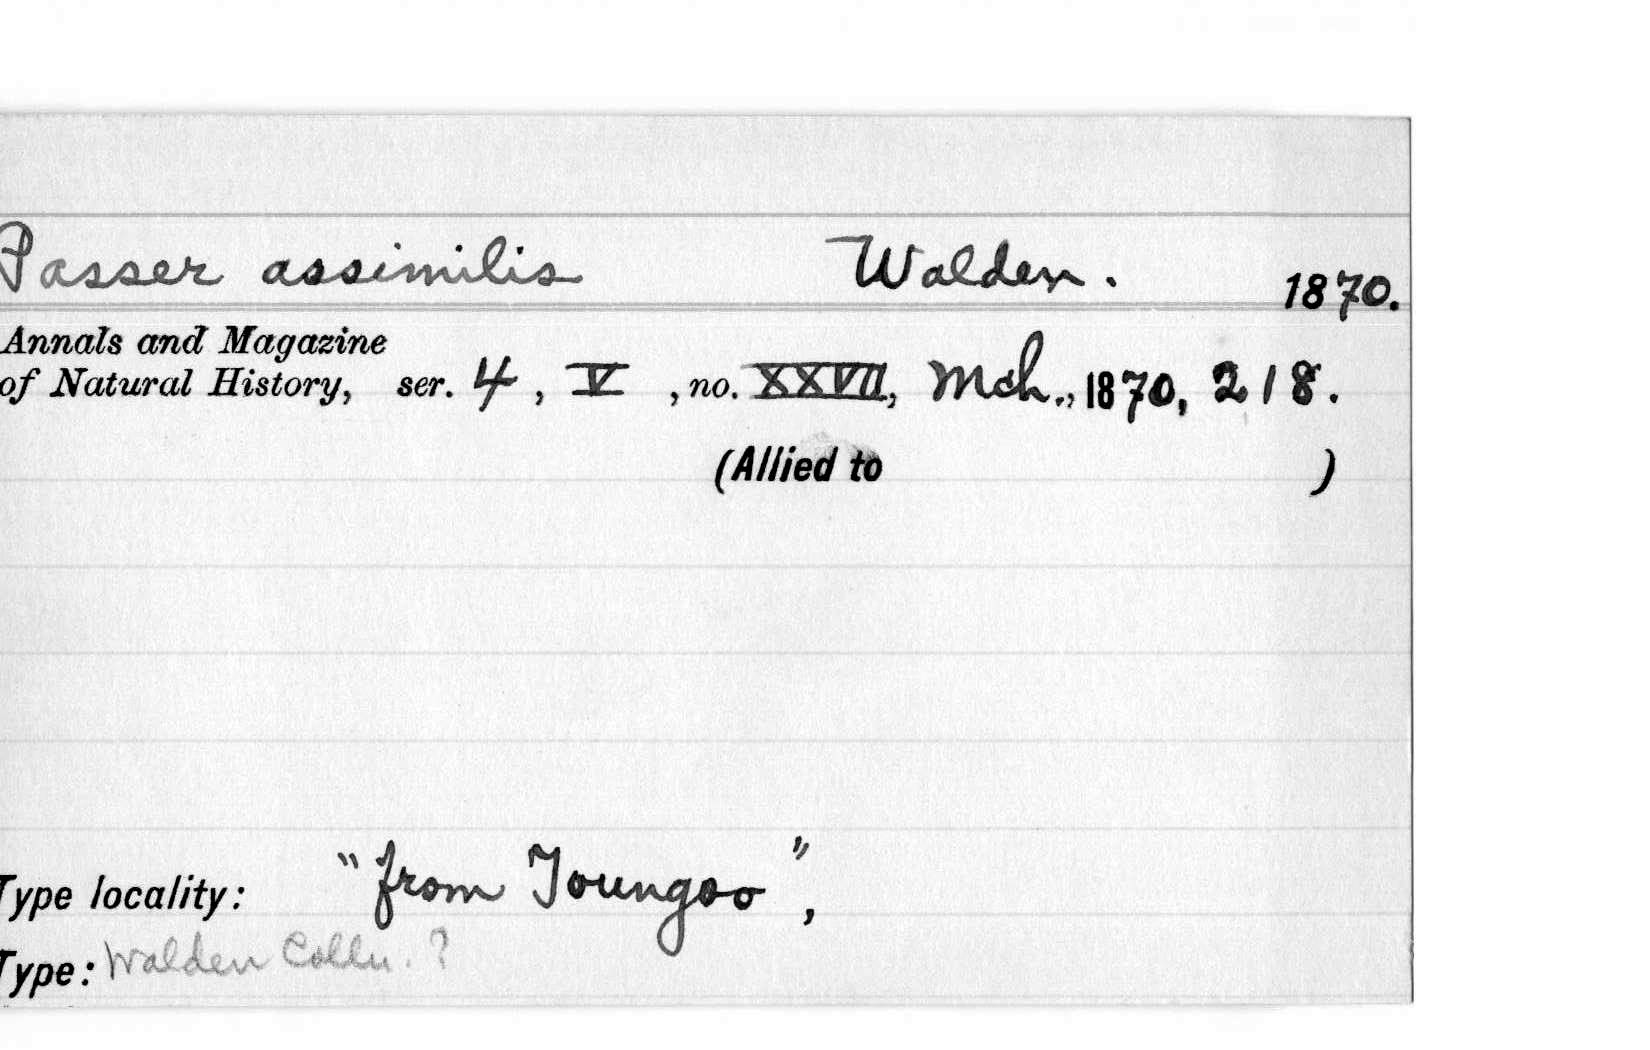 Passer assimilis Walden. 1870.
Annals and Magazine
of Natural History, ser. 4, V, no. XXVII, Mch., 1870, 218.
(Allied to )
Type locality: "from Toungoo",
Type: Walden Colln. ?